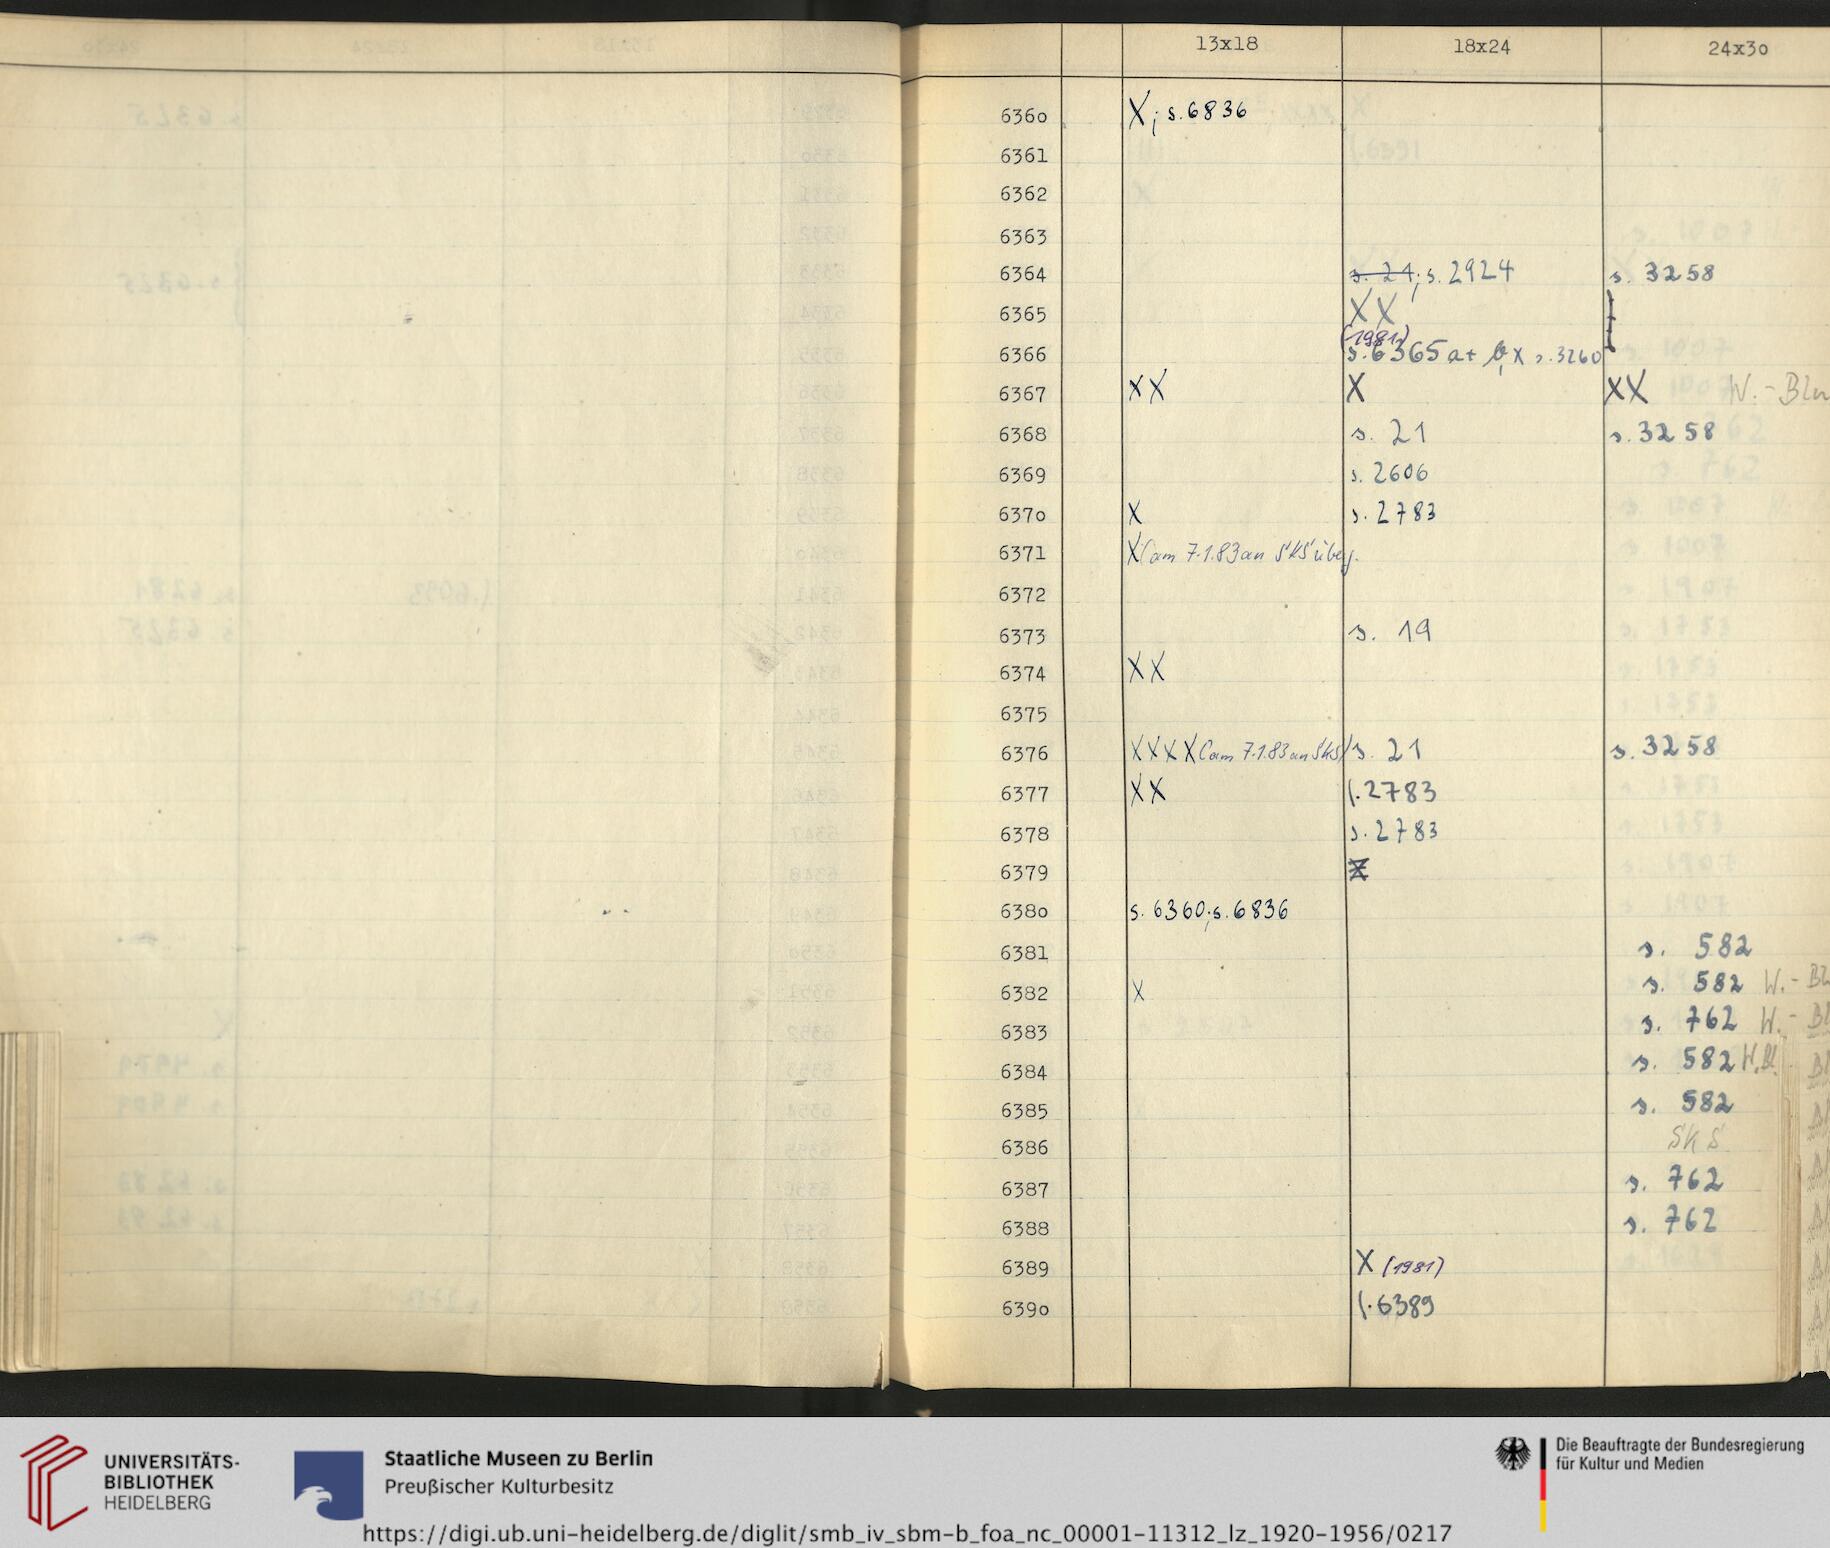 13x18 18x24 24x3o
636o X; s.6836
6361
6362
6363
6364 s. 21; s. 2924 s. 3258
6365 XX
(1981)
6366 s. 6365 a+ b, x s. 3260
6367 XX X XX W. - Blu
6368 s. 21 s. 3258
6369 s. 2606
637o X s. 2783
6371 X (am 7.1.83 an SKS überg.
6372
6373 s. 19
6374 XX
6375
6376 XXXX (am 7.1.83 an SKS) s. 21 s. 3258
6377 XX s. 2783
6378 s. 2783
6379
638o s. 6360; s. 6836
6381 s. 582
6382 X s. 582 W. - Bl
6383 s. 762 W. - Bl
6384 s. 582 W. Bl.
6385 s. 582
6386 SKS
6387 s. 762
6388 s. 762
6389 X (1981)
639o s. 6389
UNIVERSITÄTS-
BIBLIOTHEK
HEIDELBERG
Staatliche Museen zu Berlin
Preußischer Kulturbesitz
Die Beauftragte der Bundesregierung
für Kultur und Medien
https://digi.ub.uni-heidelberg.de/diglit/smb_iv_sbm-b_foa_nc_00001-11312_lz_1920-1956/0217